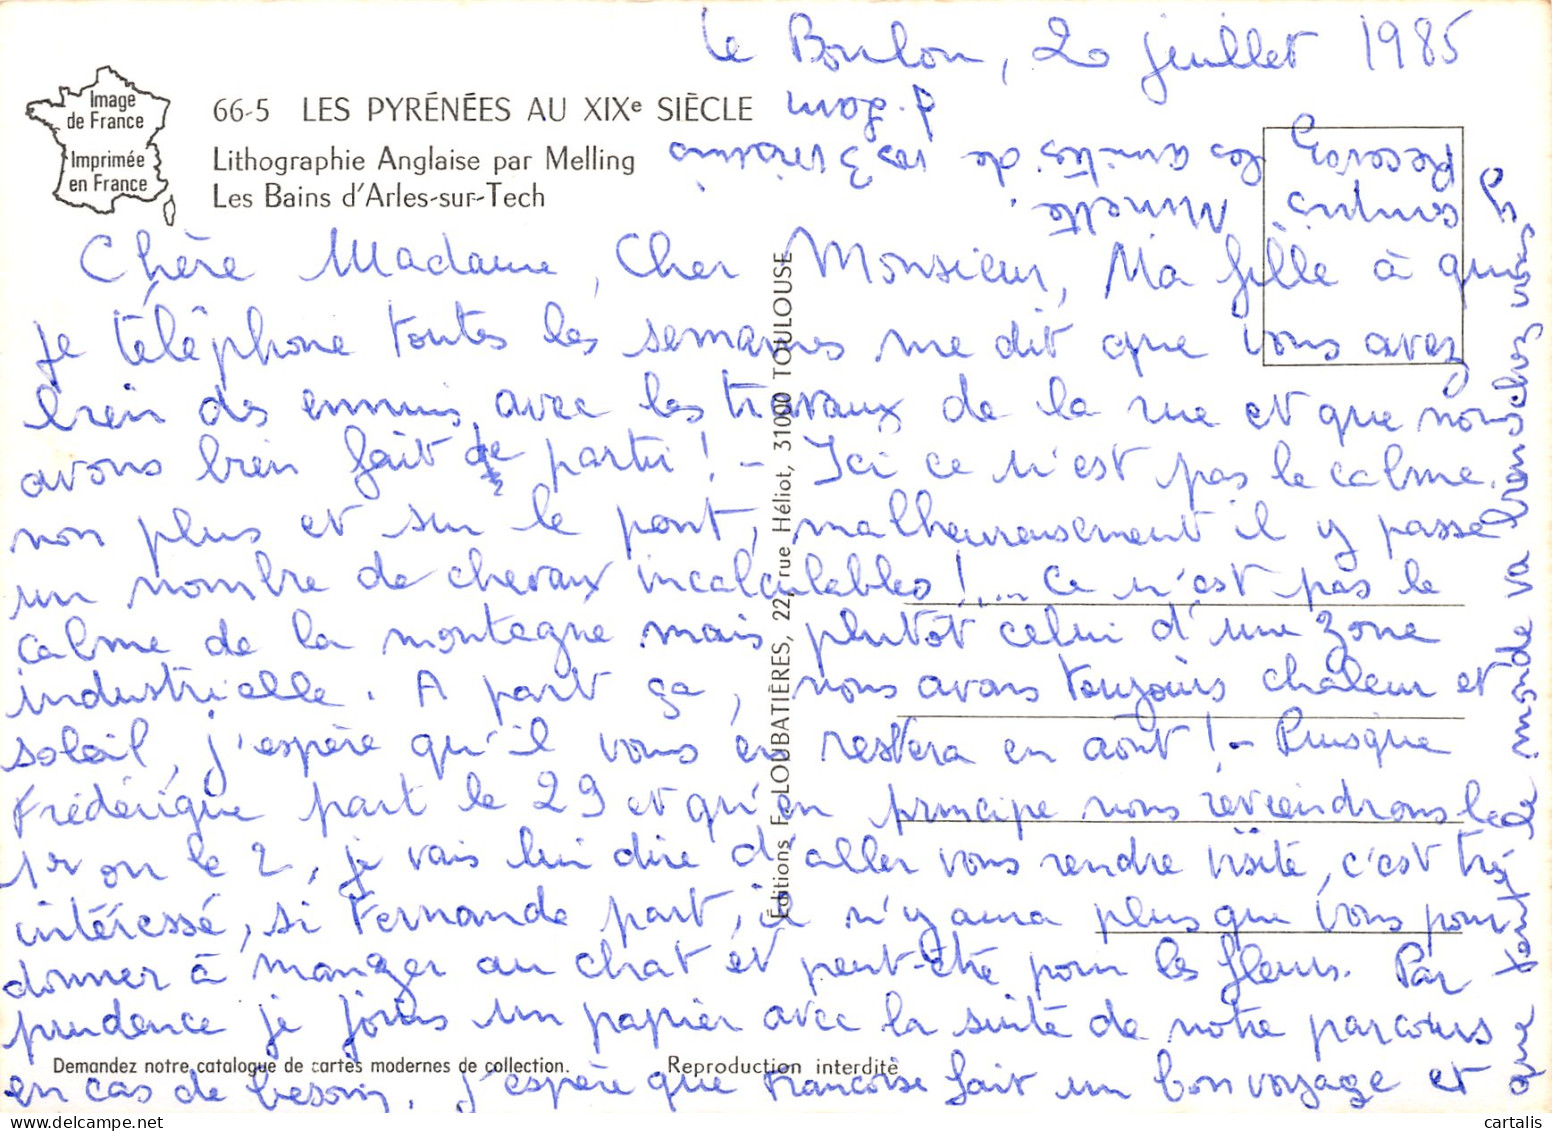 le Boulou, 20 juillet 1985
Image
de France
Imprimée
en France
66-5 LES PYRÉNÉES AU XIXe SIÈCLE
Lithographie Anglaise par Melling
Les Bains d'Arles-sur-Tech
Chère Madame, Cher Monsieur, Ma fille à qui
je téléphone toutes les semaines me dit que vous avez
bien des ennuis avec les travaux de la rue et que nous
avons bien fait de partir ! - Ici ce n'est pas le calme
non plus et sur le pont, malheureusement il y passe
un nombre de chevaux incalculables !... Ce n'est pas le
calme de la montagne mais plutôt celui d'une zone
industrielle. A part ça, nous avons toujours chaleur et
soleil, j'espère qu'il vous en restera en août ! - Puisque
Frédérique part le 29 et qu'en principe nous reviendrons le
1er ou le 2, je vais lui dire d'aller vous rendre visite, c'est très
intéressé, si Fernande part, il n'y aura plus que vous pour
donner à manger au chat et peut-être pour les fleurs. Par
prudence je joins un papier avec la suite de notre parcours
en cas de besoin. J'espère que Francoise fait un bon voyage et
que tout le monde va bien chez vous
y compris Minette.
Recevez les amitiés de vos 3 voisins
Éditions F. LOUBATIÈRES, 22, rue Héliot, 31000 TOULOUSE
Demandez notre catalogue de cartes modernes de collection.
Reproduction interdite
delcampe.net
cartalis